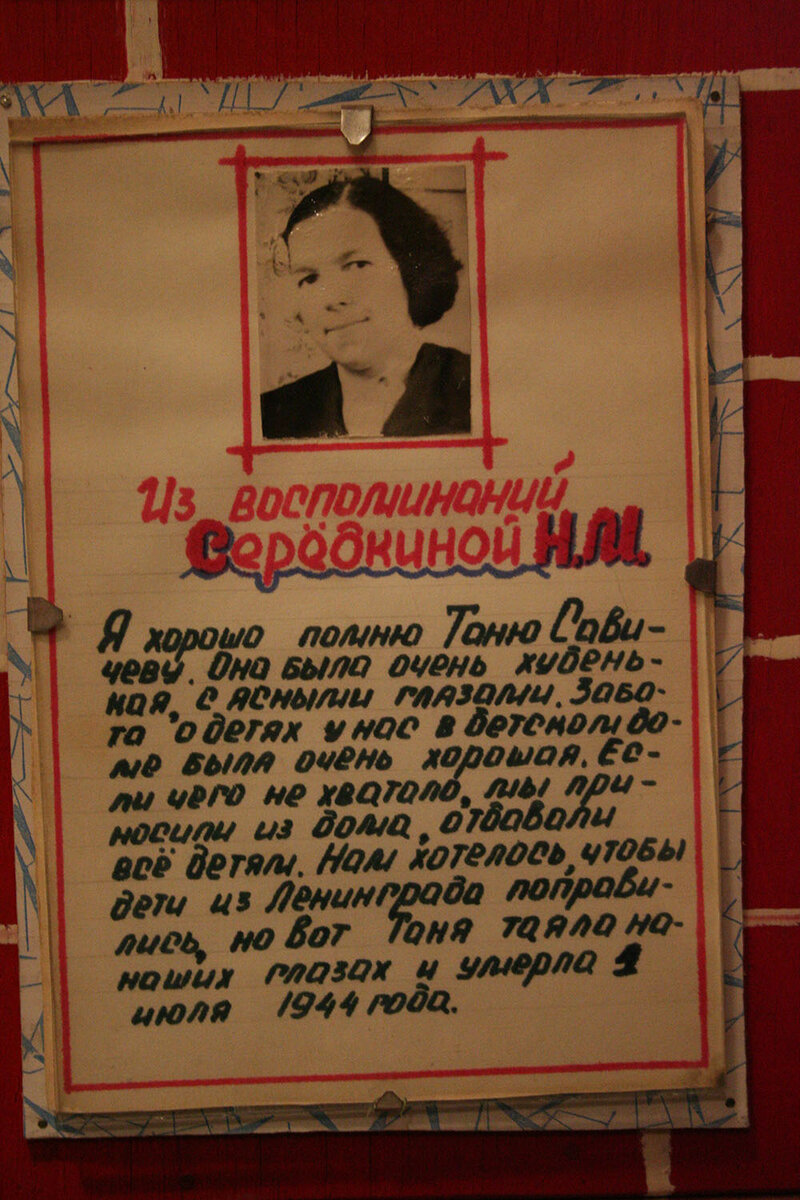 Из воспоминаний
Серёдкиной Н.М.
Я хорошо помню Таню Сави-
чеву. Она была очень худень-
кая, с ясными глазами. Забо-
та о детях у нас в детском до-
ме была очень хорошая. Ес-
ли чего не хватало, мы при-
носили из дома, отдавали
всё детям. Нам хотелось, чтобы
дети из Ленинграда поправи-
лись, но вот Таня таяла на
наших глазах и умерла 1
июля 1944 года.